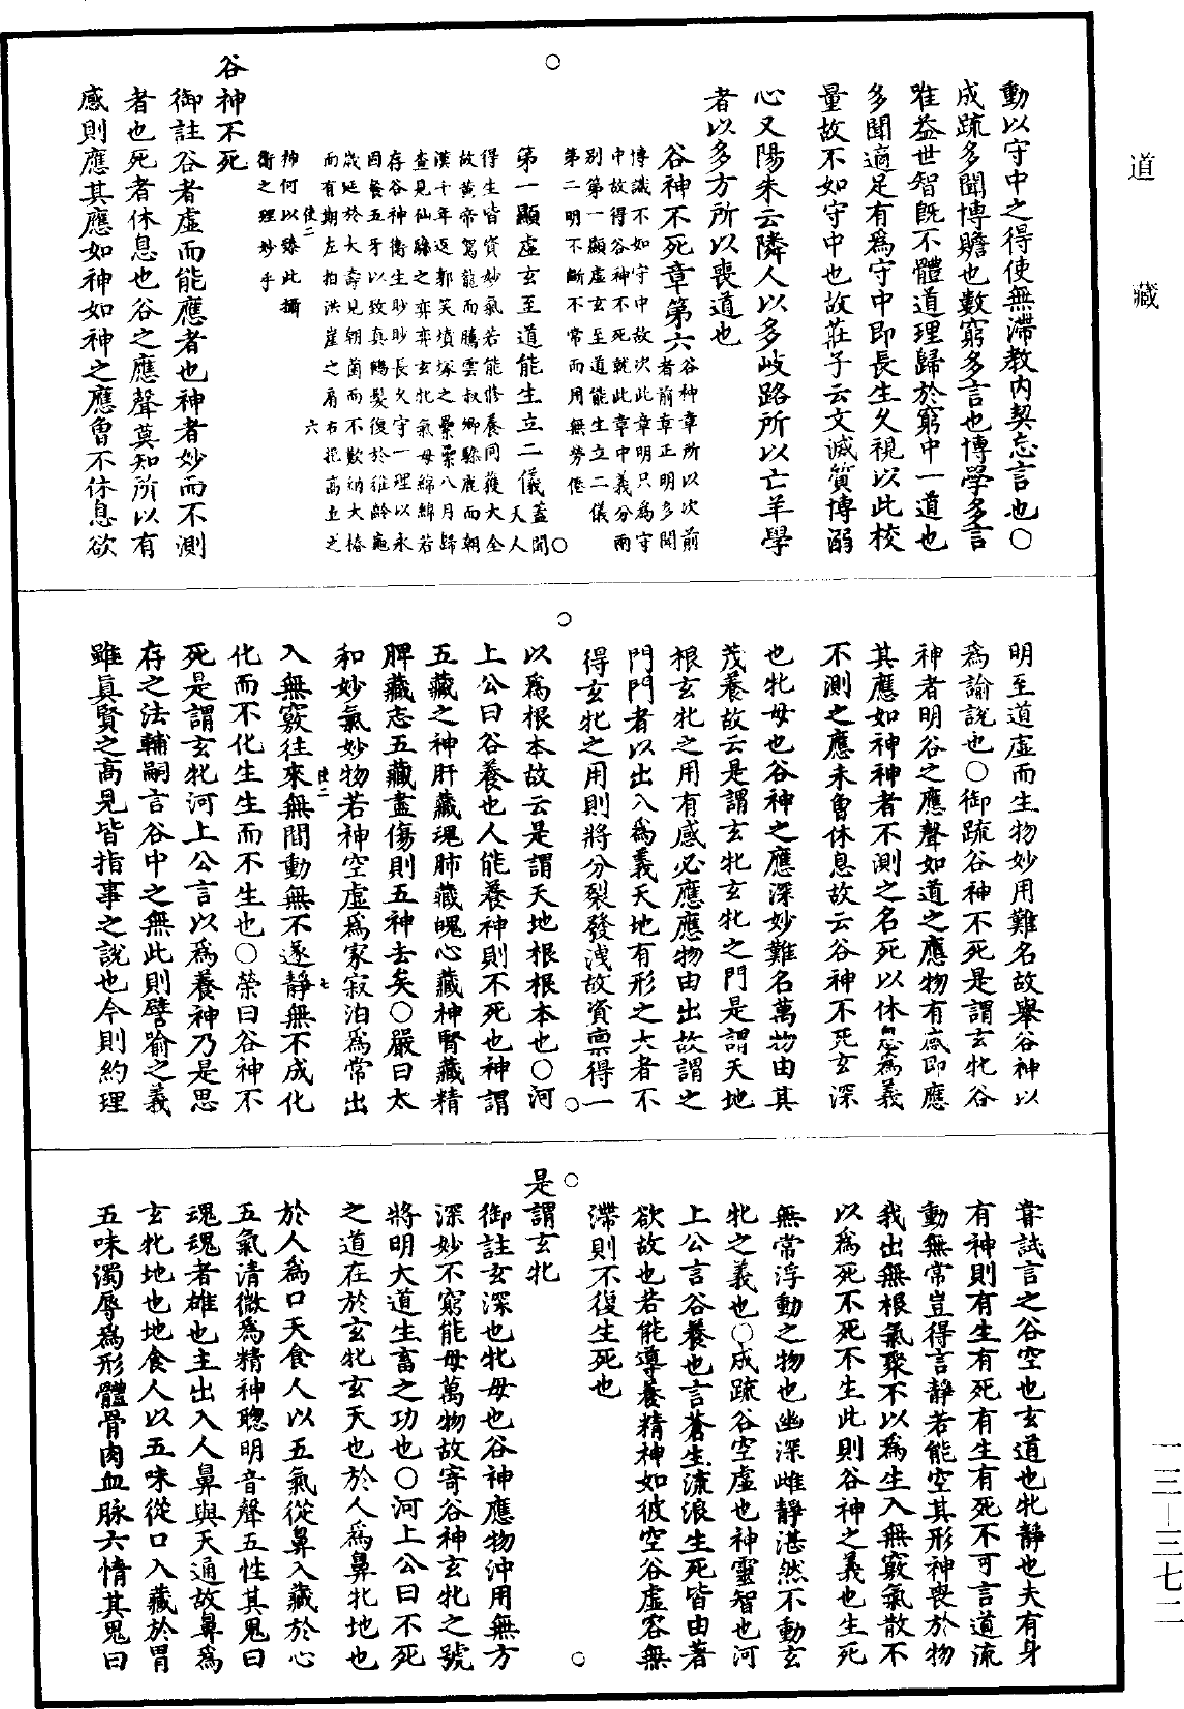 道藏
動以守中之得使無滯教內契忘言也○
成疏多聞博贍也數窮多言也博學多言
唯益世智既不體道理歸於窮中一道也
多聞適足有為守中即長生久視以此校
量故不如守中也故莊子云文滅質博溺
心又陽朱云隣人以多岐路所以亡羊學
者以多方所以喪道也
谷神不死章第六谷神章所以次前
者前章正明多聞
博識不如守中故次此章明只為守
中故得谷神不死就此章中義分兩
別第一顯虛玄至道能生立二儀
第二明不斷不常而用無勞倦○
第一顯虛玄至道能生立二儀蓋聞
天人
得生皆資妙氣若能修養同獲大全
故黃帝駕龍而騰雲叔卿驂鹿而朝
漢千年返郭笑墳塚之纍纍八月歸
查見仙牀之弈弈玄牝氣母綿綿若
存谷神衛生眇眇長久守一理以永
固餐五牙以致真鶴髮復於稚齡龜
歲延於大壽見朝菌而不歎納大椿
而有期左拍洪崖之肩右挹高上之
使二 六
袖何以臻此攝
衛之理妙乎
谷神不死
御註谷者虛而能應者也神者妙而不測
者也死者休息也谷之應聲莫知所以有
感則應其應如神如神之應曾不休息欲
明至道虛而生物妙用難名故舉谷神以
為諭說也○御疏谷神不死是謂玄牝谷
神者明谷之應聲如道之應物有感即應
其應如神神者不測之名死以休息為義
不測之應未曾休息故云谷神不死玄深
也牝母也谷神之應深妙難名萬物由其
茂養故云是謂玄牝玄牝之門是謂天地
根玄牝之用有感必應應物由出故謂之
門門者以出入為義天地有形之大者不
得玄牝之用則將分裂發洩故資稟得一
以為根本故云是謂天地根根本也○河
上公曰谷養也人能養神則不死也神謂
五藏之神肝藏魂肺藏魄心藏神腎藏精
脾藏志五藏盡傷則五神去矣○嚴曰太
和妙氣妙物若神空虛為家寂泊為常出
使二 七
入無竅往來無間動無不遂靜無不成化
化而不化生生而不生也○榮曰谷神不
死是謂玄牝河上公言以為養神乃是思
存之法輔嗣言谷中之無此則譬喻之義
雖真賢之高見皆指事之說也今則約理
甞試言之谷空也玄道也牝靜也夫有身
有神則有生有死有生有死不可言道流
動無常豈得言靜若能空其形神喪於物
我出無根氣聚不以為生入無竅氣散不
以為死不死不生此則谷神之義也生死
無常浮動之物也幽深雌靜湛然不動玄
牝之義也○成疏谷空虛也神靈智也河
上公言谷養也言蒼生流浪生死皆由著
欲故也若能導養精神如彼空谷虛容無
滯則不復生死也
是謂玄牝
御註玄深也牝母也谷神應物沖用無方
深妙不窮能母萬物故寄谷神玄牝之號
將明大道生畜之功也○河上公曰不死
之道在於玄牝玄天也於人為鼻牝地也
於人為口天食人以五氣從鼻入藏於心
五氣清微為精神聰明音聲五性其鬼曰
魂魂者雄也主出入人鼻與天通故鼻為
玄牝地也地食人以五味從口入藏於胃
五味濁辱為形體骨肉血脉六情其鬼曰
一三—三七二